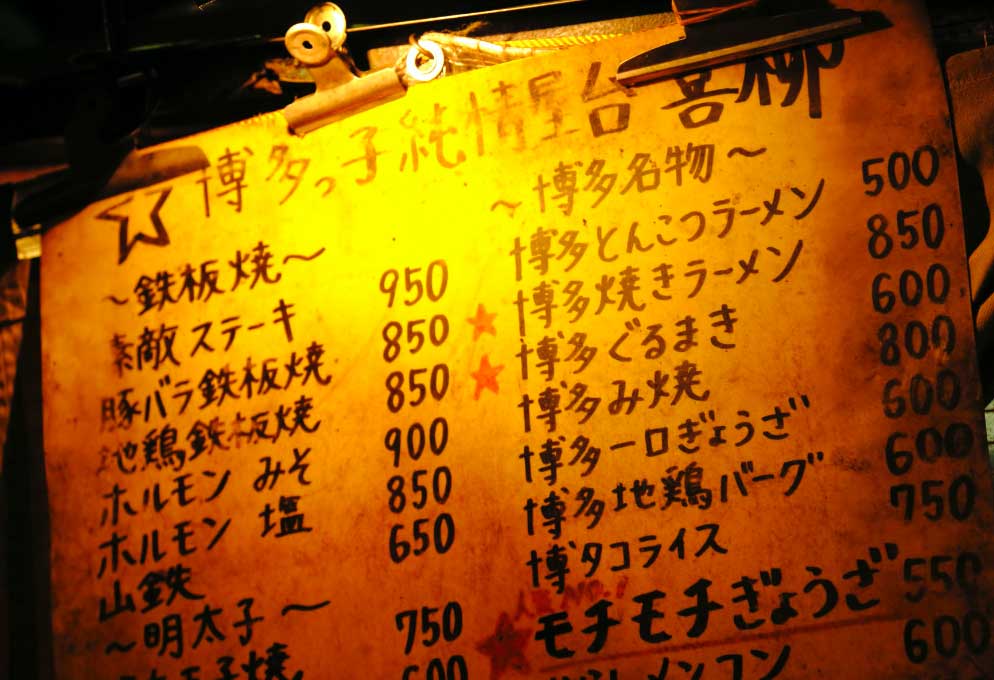 ☆博多っ子純情屋台喜柳
～鉄板焼～
素敵ステーキ 950
豚バラ鉄板焼 850
地鶏鉄板焼 850
ホルモン みそ 900
ホルモン 塩 850
山鉄 650
～明太子～
750
600
～博多名物～
博多とんこつラーメン 500
博多焼きラーメン 850
博多ぐるまき 600
博多み焼 800
博多一口ぎょうざ 600
博多地鶏バーグ 600
博タコライス 750
人気NO.1
モチモチぎょうざ 550
600